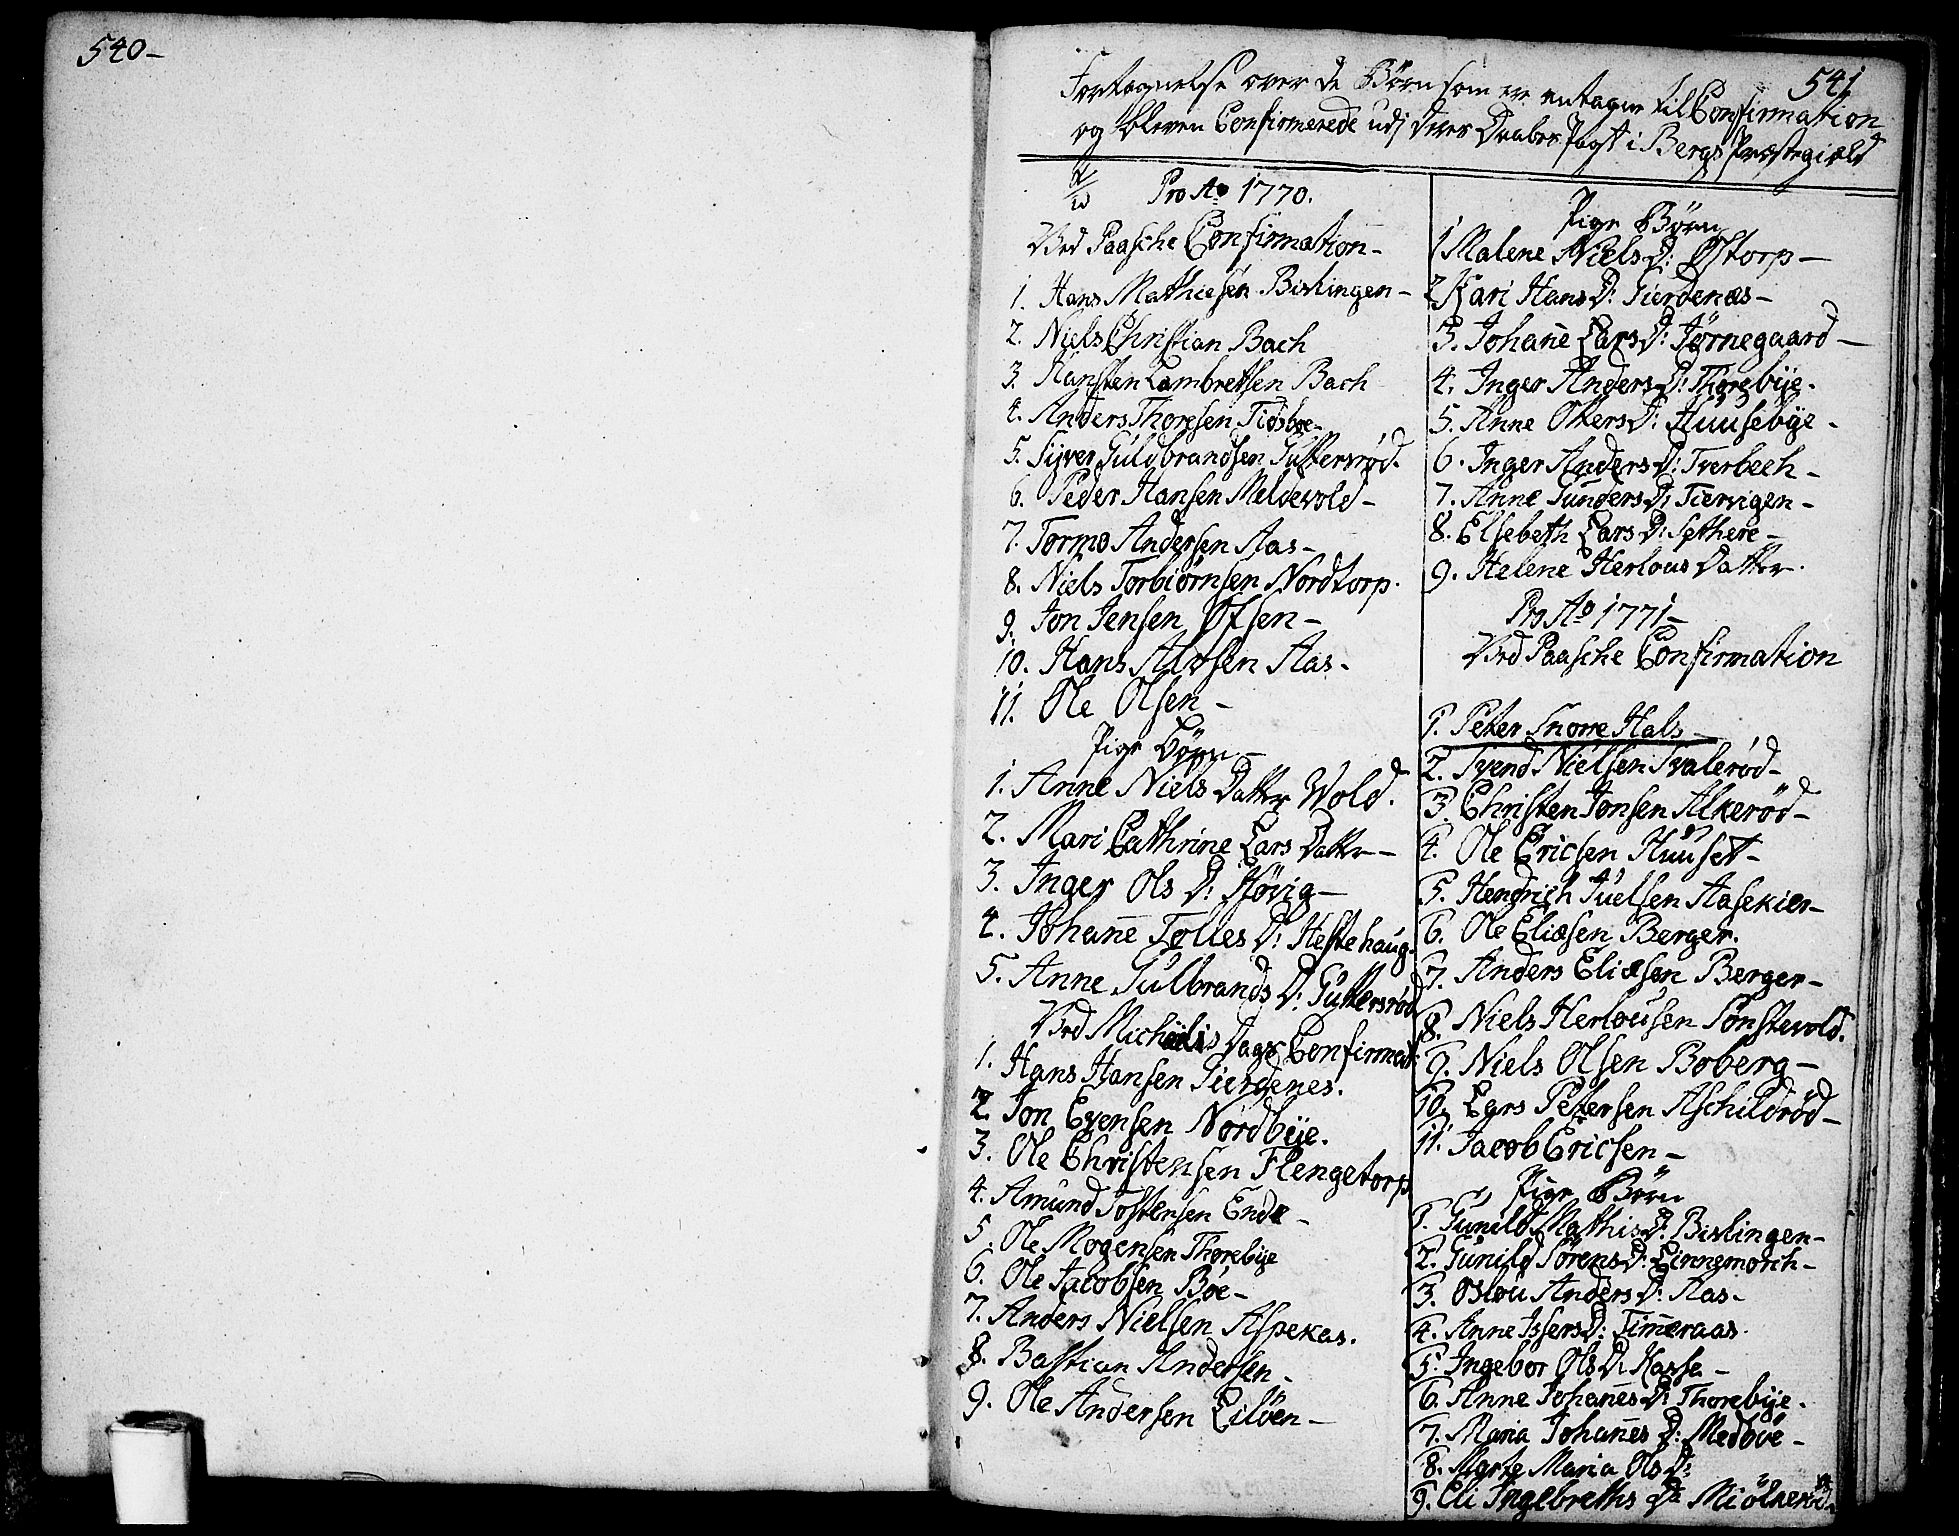 540-
541
Fortegnelse over de Børn som ere antagne til Confirmation
og bleven Confirmerede udj deres Daabes Pagt i Bergs Præstegield
Pro Ao 1770.
Ved Paasche Confirmation-
1. Hans Mathiesen Bislingen-
2. Niels Christian Bach
3. Karsten Lambretsen Bach
4. Anders Thoresen Tiøsbøe-
5. Siver Guldbrandsen Guttersrød.
6. Peder Hansen Meldevold-
7. Tormo Andersen Aas-
8. Niels Torbiørnsen Nordtorp.
9. Jon Jensen Ofsen-
10. Hans Alvsen Aas-
11. Ole Olsen-
Pige Børn-
1. Anne Niels Datter Wold.
2. Mari Cathrine Lars Datter-
3. Inger Ols D: Høvig-
4. Johañe Tolles D: Hestehaug.
5. Anne Gulbrands D: Guttersrød
Ved Michaelis Dags Confirmat:
1. Hans Hansen Gierdenes.
2. Jon Evensen Nordbÿe.
3. Ole Christensen Flengetorp
4. Amund Jostensen Ende-
5. Ole Mogensen Thorebÿe
6. Ole Jacobsen Bøe-
7. Anders Nielsen Aspekas.
8. Bastian Andersen-
9. Ole Andersen Liløen-
Pige Børn
1 Malene Niels D: Østorp-
2 Kari Hans D: Gierdenæs-
3. Johañe Lars D: Jørnegaard-
4. Inger Anders D: Thorebÿe.
5. Anne Olters D: Huusebÿe-
6. Inger Anders D: Tverbech-
7. Anne Gunders D: Tiervigen-
8. Elsebeth Lars D: Sethere-
9. Helene Herlous Datter.
Pro Ao 1771-
Ved Paasche Confirmation
1. Peter Snorre Hals-
2. Svend Nielsen Svalerød-
3. Christen Jonsen Alkerød-
4. Ole Ericsen Huuset-
5. Hendrich Juelsen Aasekier-
6. Ole Eliæsen Berger.
7. Anders Eliæsen Berger-
8. Niels Herlousen Sønstevold.
9. Niels Olsen Boberg-
10. Lars Petersen Aschildrød-
11. Jacob Ericsen-
Pige Børn
1. Gunild Mathis D: Bislingen-
2. Gunild Sørens D: Linnemorch-
3. Oslou Anders D: Aas-
4. Anne Issers D: Timeraas.
5. Ingebor Ols D: Kasse-
6. Anne Johañes D: Thorebÿe.
7. Maria Johañes D: Medbøe-
8. Marte Maria Ols D:
9. Eli Ingebreths D: Miølnerød-